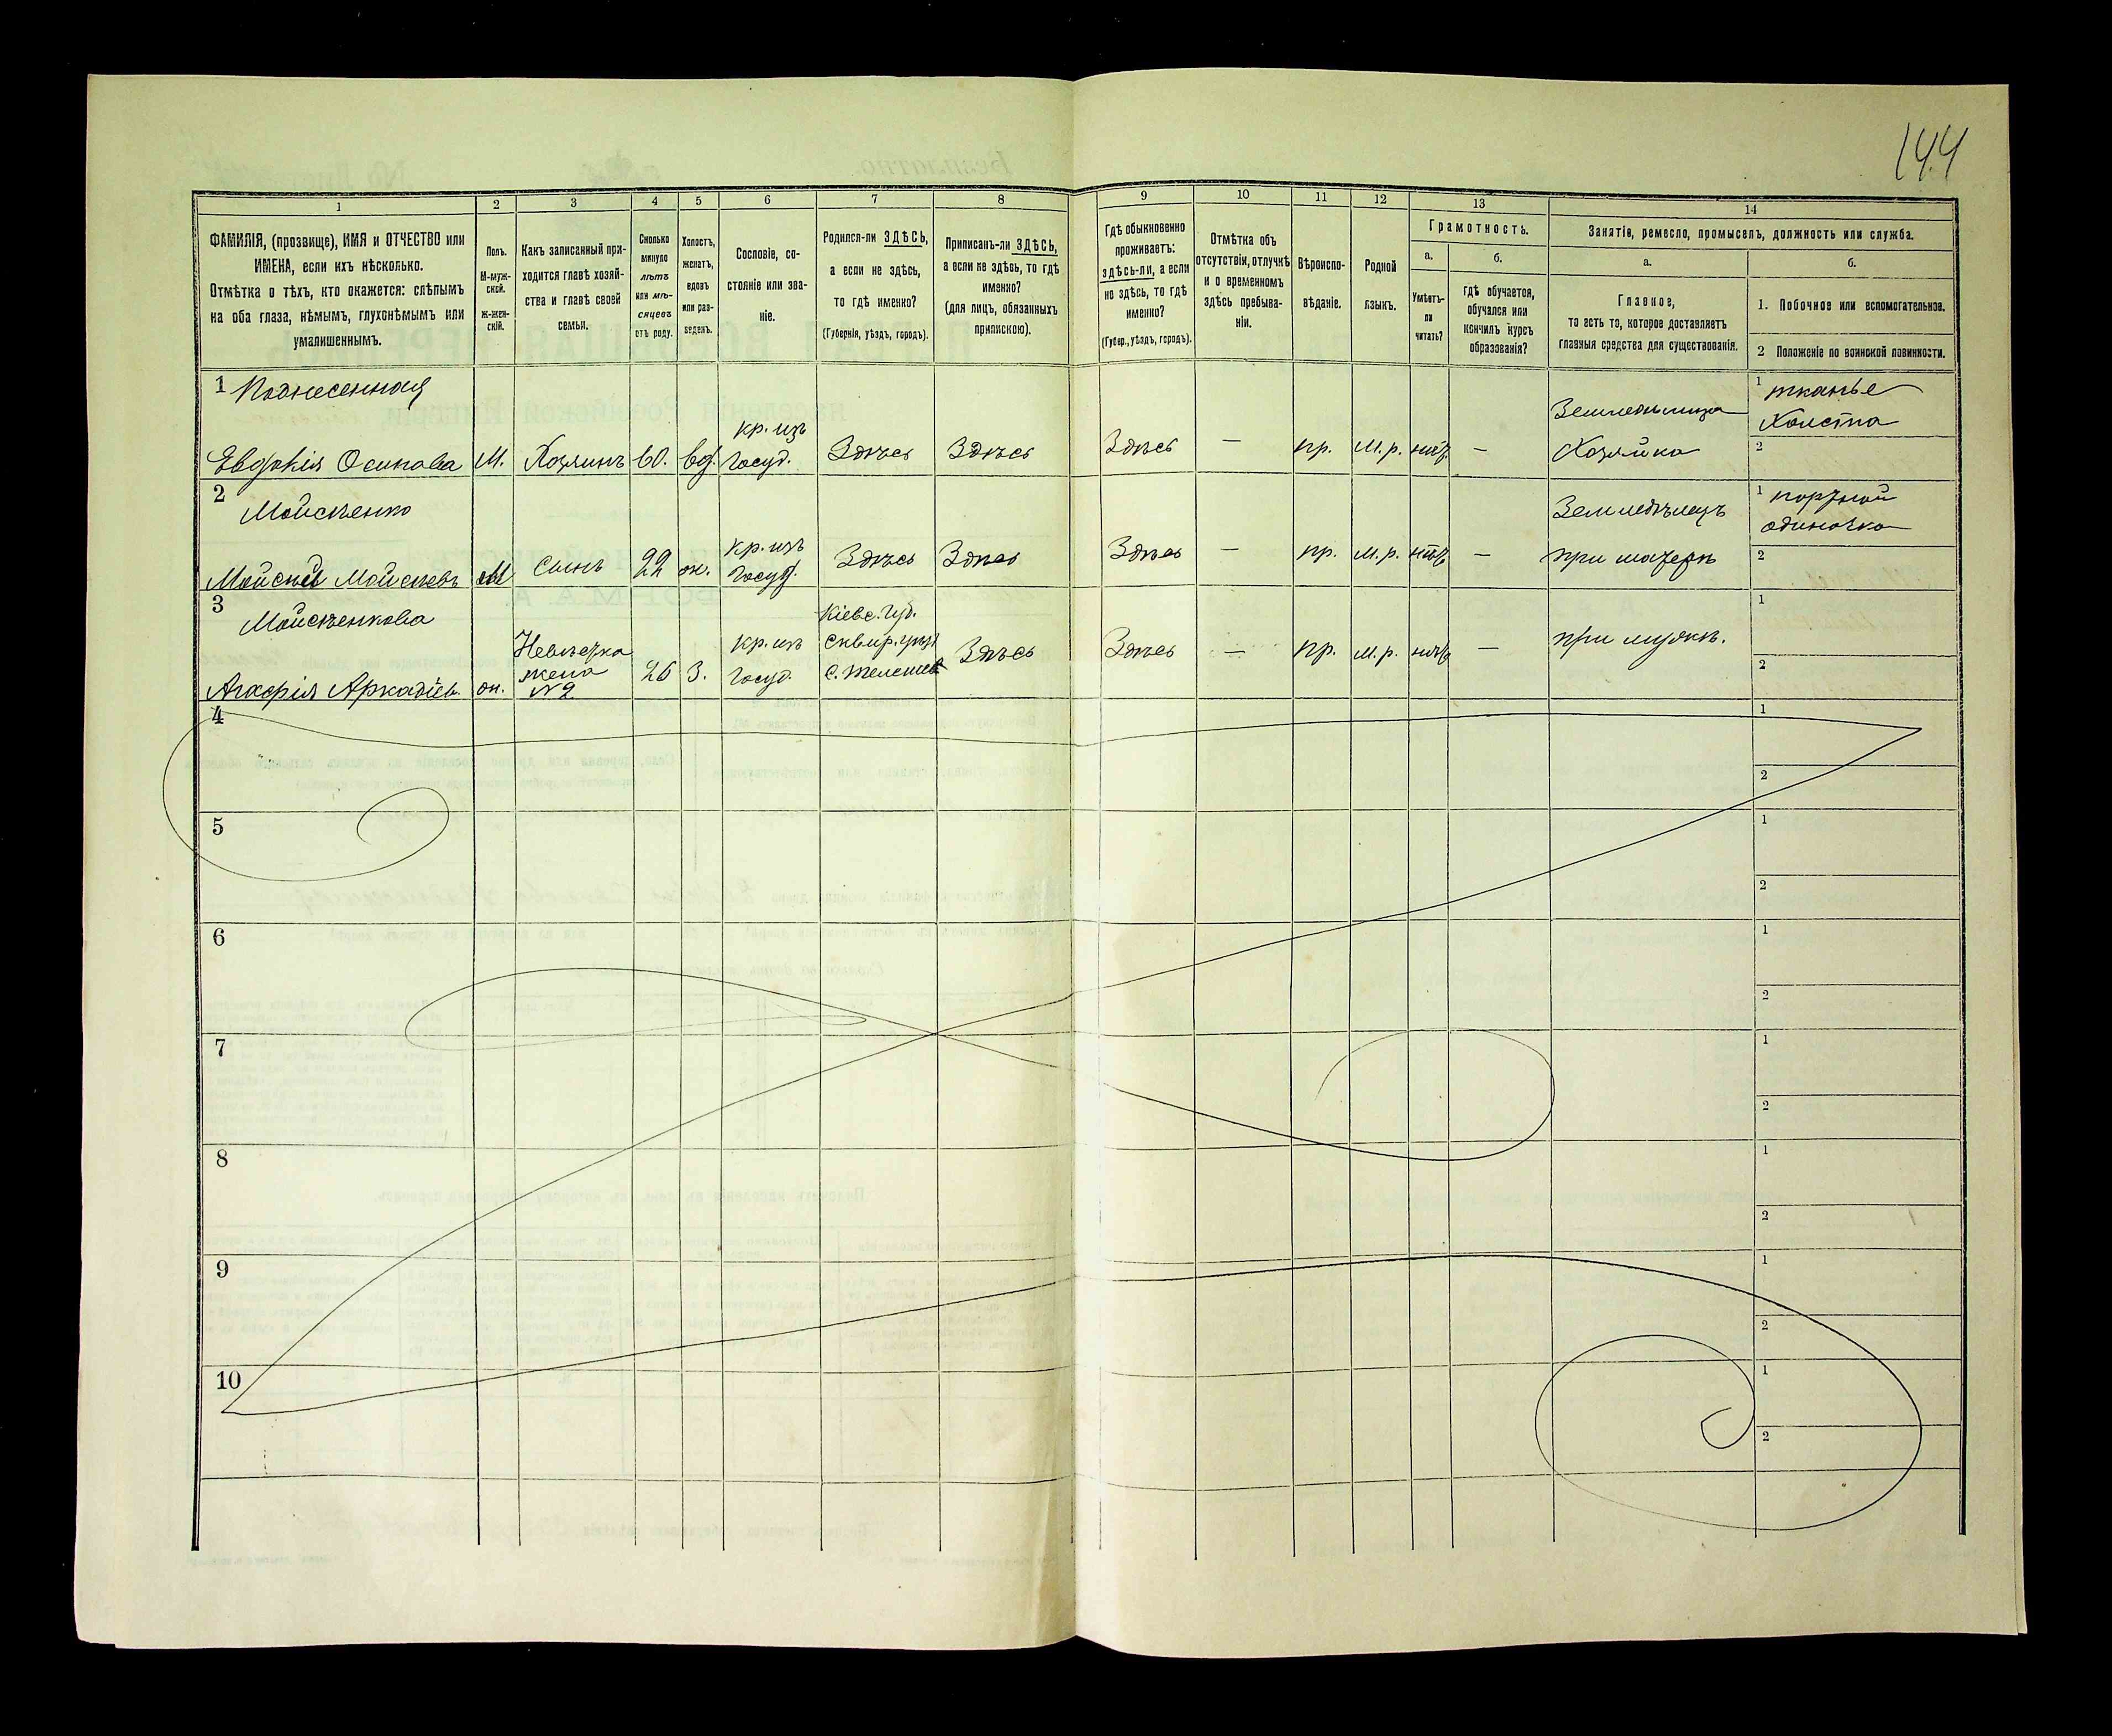 144
1
2
3
4
5
6
7
8
9
10
11
12
13
14
ФАМИЛІЯ, (прозвище), ИМЯ и ОТЧЕСТВО или
ИМЕНА, если ихъ нѣсколько.
Отмѣтка о тѣхъ, кто окажется: слѣпымъ
на оба глаза, нѣмымъ, глухонѣмымъ или
умалишеннымъ.
Полъ.
М-муж-
ской.
Ж-жен-
скій.
Какъ записанный при-
ходится главѣ хозяй-
ства и главѣ своей
семьи.
Сколько
минуло
лѣтъ
или мѣ-
сяцевъ
отъ роду.
Холостъ,
женатъ,
вдовъ
или раз-
веденъ.
Сословіе, со-
стояніе или зва-
ніе.
Родился-ли ЗДѢСЬ,
а если не здѣсь,
то гдѣ именно?
(Губернія, уѣздъ, городъ).
Приписанъ-ли ЗДѢСЬ,
а если не здѣсь, то гдѣ
именно?
(для лицъ, обязанныхъ
припискою).
Гдѣ обыкновенно
проживаетъ:
здѣсь-ли, а если
не здѣсь, то гдѣ
именно?
(Губер., уѣздъ, городъ).
Отмѣтка объ
отсутствіи, отлучкѣ
и о временномъ
здѣсь пребыва-
ніи.
Вѣроиспо-
вѣданіе.
Родной
языкъ.
Грамотность.
а.
Умѣетъ-
ли
читать?
б.
гдѣ обучается,
обучался или
кончилъ курсъ
образованія?
Занятіе, ремесло, промыселъ, должность или служба.
а.
Главное,
то есть то, которое доставляетъ
главныя средства для существованія.
б.
1. Побочное или вспомогательное.
2 Положеніе по воинской повинности.
1
Евдокія Осипова
М.
Хозяинъ
60.
вд.
кр. изъ
Госуд.
Здѣсь
Здѣсь
Здѣсь
—
пр.
м.р.
нѣтъ
—
Земледѣлица
Хозяйка
1 тканье
Холста
2
2
Мойсѣенко
Мойсѣй Мойсѣевъ
М
Сынъ
22
ж.
кр. изъ
Госуд.
Здѣсь
Здѣсь
Здѣсь
—
пр.
м.р.
нѣтъ
—
Земледѣлецъ
при матери
1 портной
одиночка
2
3
Мойсѣенкова
Агафія Аркадіев.
ж.
Невѣстка
жена
№2
26
З.
кр. изъ
Госуд.
Кіевс. Губ.
Сквир. уѣз.
Здѣсь
Здѣсь
—
пр.
м.р.
нѣтъ
—
при мужѣ.
1
2
4
1
2
5
1
2
6
1
2
7
1
2
8
1
2
9
1
2
10
1
2